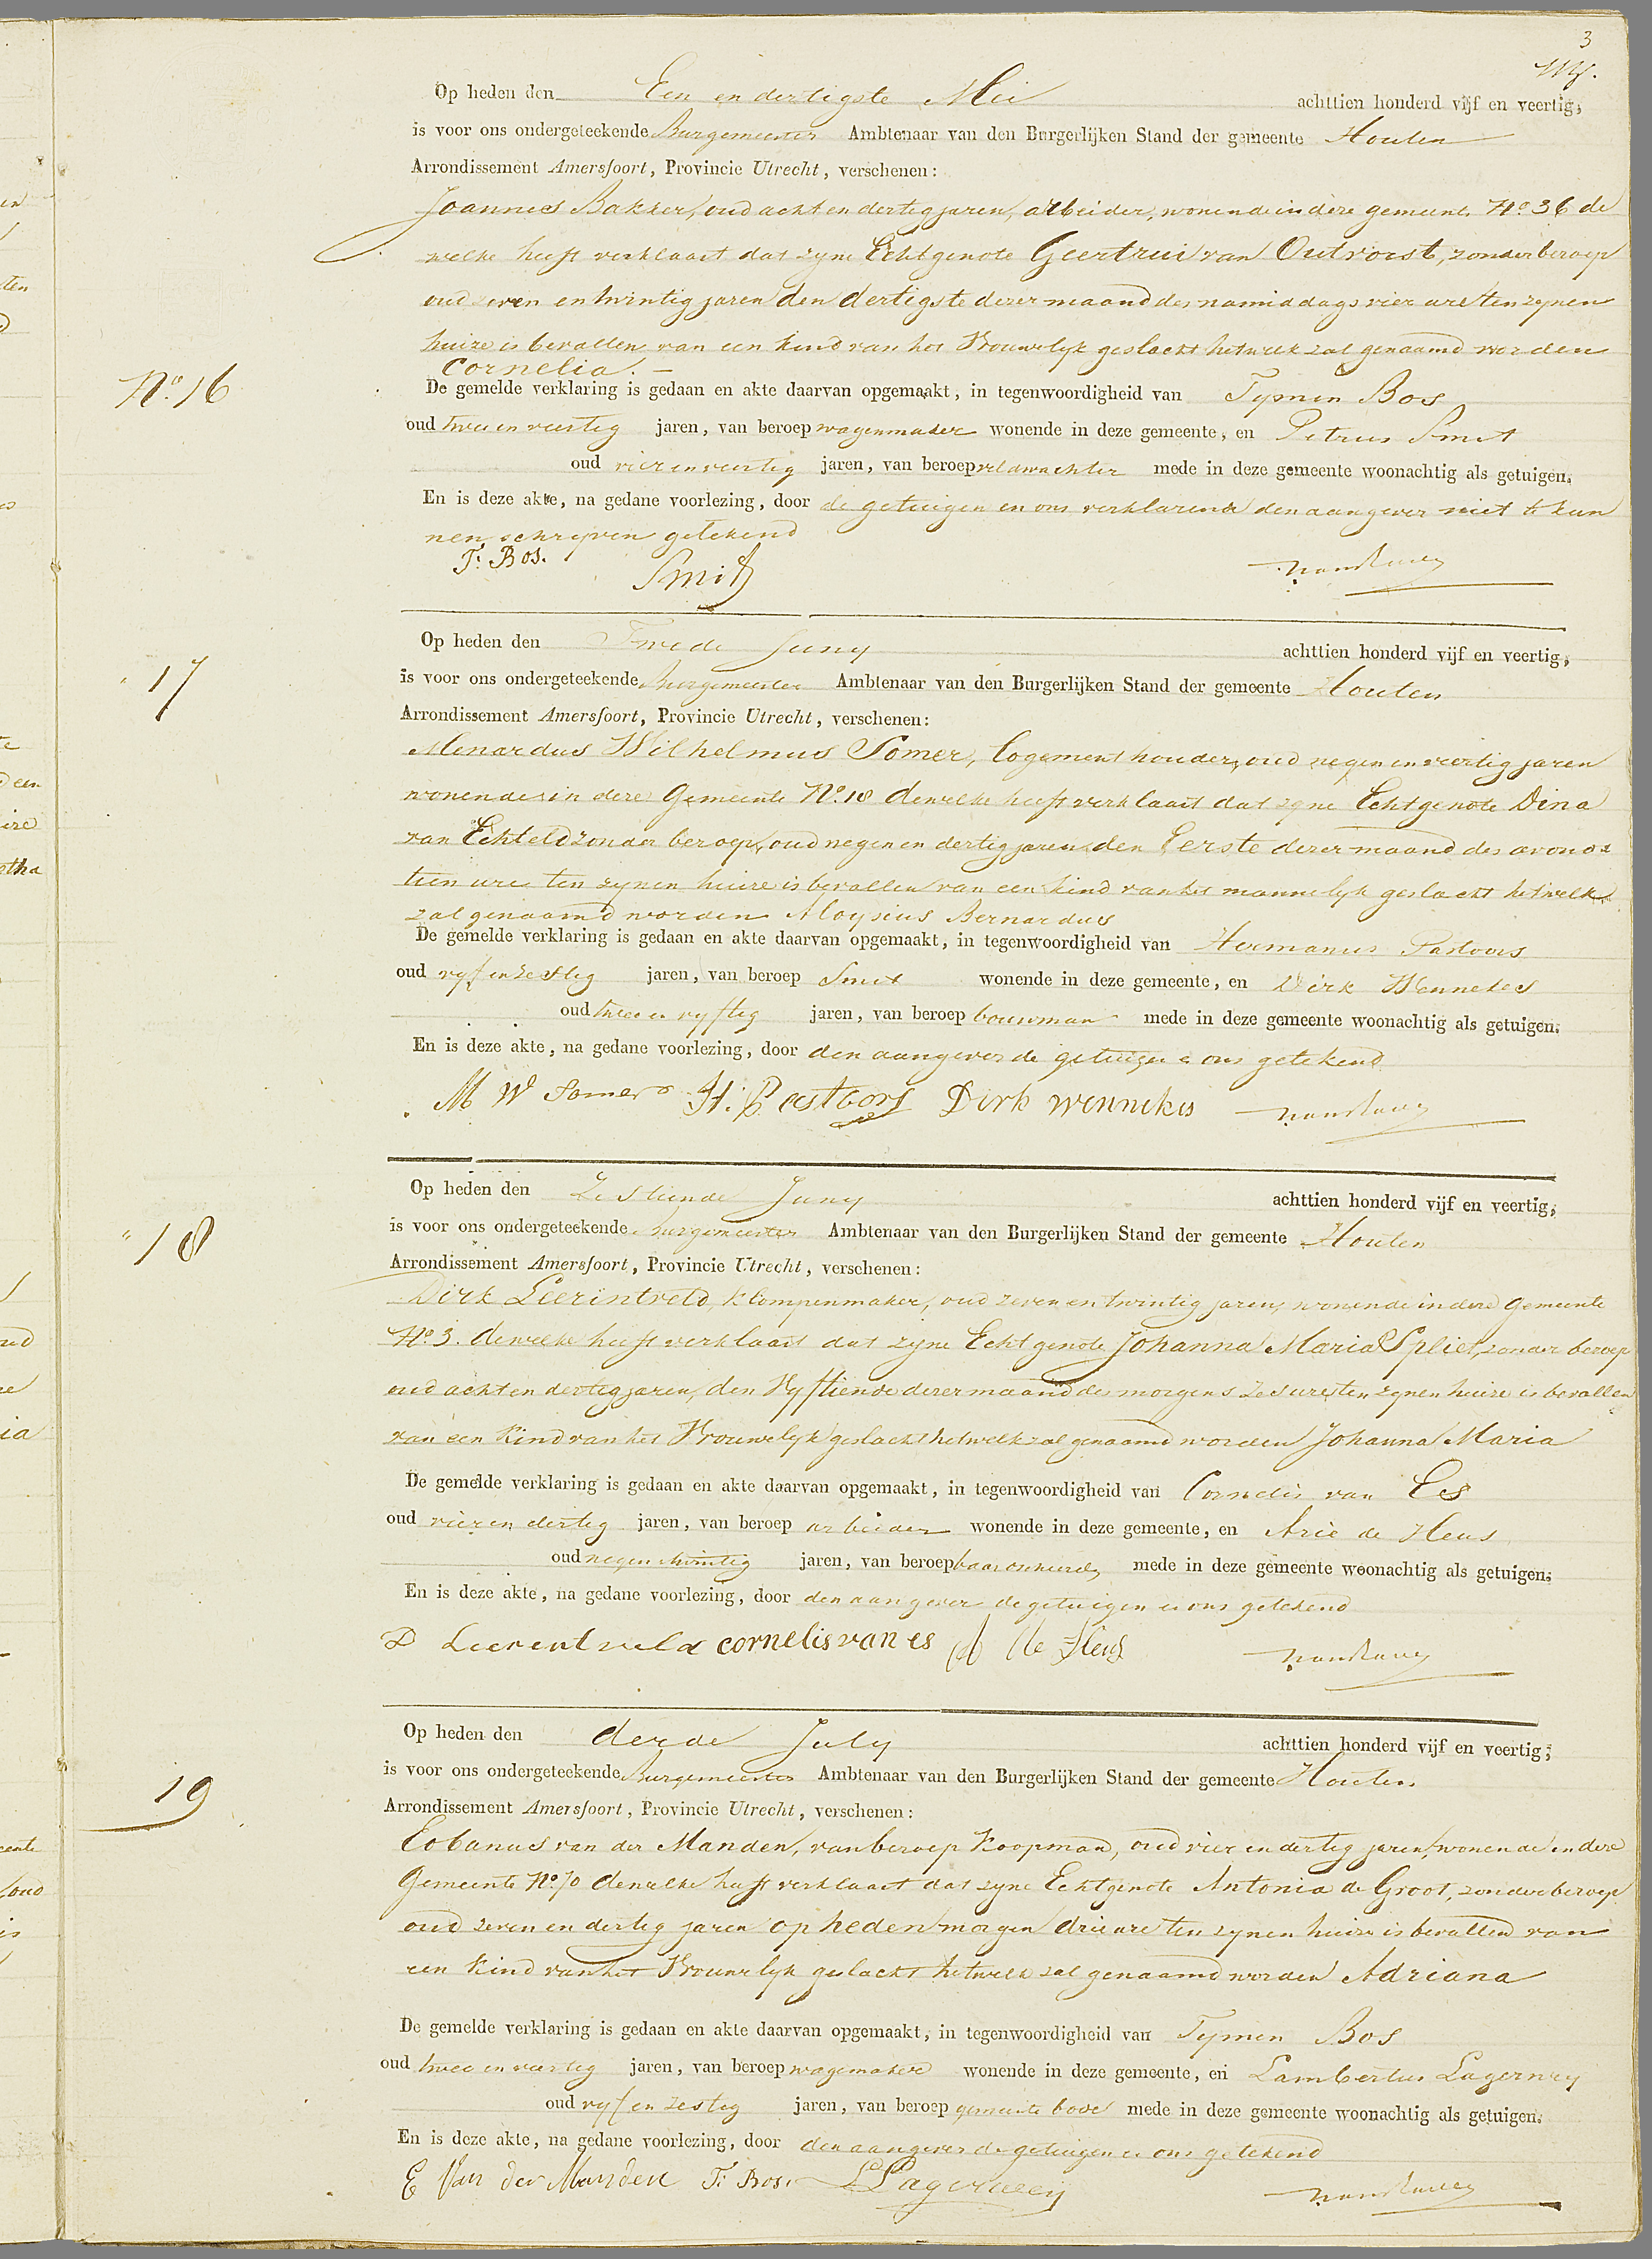 3
Op heden den Een en dertigste Mei achttien honderd vijf en veertig,
is voor ons ondergeteekende Burgemeester Ambtenaar van den Burgerlijken Stand der gemeente Houten
Arrondissement Amersfoort, Provincie Utrecht, verschenen:
Joannes Bakker, oud acht en dertig jaren, arbeider, wonende in deze gemeente No 36 de
welke heeft verklaart dat zyne Echtgenote Geertrui van Outvorst, zonder beroep
oud zeven en twintig jaren den dertigste dezer maand des namiddags vier ure ten zynen
huize is bevallen van een kind van het Vrouwelyk geslacht hetwelk zal genaamd worden
Cornelia. —
No 16
De gemelde verklaring is gedaan en akte daarvan opgemaakt, in tegenwoordigheid van Tymen Bos
oud twee en veertig jaren, van beroep wagenmaker wonende in deze gemeente, en Petrus Smit
oud vier en veertig jaren, van beroep veldwachter mede in deze gemeente woonachtig als getuigen.
En is deze akte, na gedane voorlezing, door de getuigen en ons verklarende den aangever niet te kun
nen schrijven getekend
T. Bos. Smit
Op heden den Twede Juny achttien honderd vijf en veertig,
17
is voor ons ondergeteekende Burgemeester Ambtenaar van den Burgerlijken Stand der gemeente Houten
Arrondissement Amersfoort, Provincie Utrecht, verschenen:
Menardus Wilhelmus Somer, logement houder, oud negen en veertig jaren
wonende in deze Gemeente No. 18 dewelke heeft verklaart dat zyne Echtgenote Dina
van Echteld zonder beroep, oud negen en dertig jaren den Eerste dezer maand des avonds
tien ure ten zynen huize is bevallen van een kind van het mannelyk geslacht hetwelk
zal genaamd worden Aloysius Bernardus
De gemelde verklaring is gedaan en akte daarvan opgemaakt, in tegenwoordigheid van Hermanus Pastoors
oud vyf en zestig jaren, van beroep Smit wonende in deze gemeente, en Dirk Wennekes
oud twee en vyftig jaren, van beroep bouwman mede in deze gemeente woonachtig als getuigen.
En is deze akte, na gedane voorlezing, door den aangever de getuigen en ons getekend
M W Somer H. Pastoors Dirk Wennekes
Op heden den Zestiende Juny achttien honderd vijf en veertig,
" 18
is voor ons ondergeteekende Burgemeester Ambtenaar van den Burgerlijken Stand der gemeente Houten
Arrondissement Amersfoort, Provincie Utrecht, verschenen:
Dirk Leerintveld, klompenmaker, oud zeven en twintig jaren, wonende in deze Gemeente
No 3. dewelke heeft verklaart dat zyne Echtgenote Johanna Maria Spliet, zonder beroep
oud acht en dertig jaren, den Vyftiende dezer maand des morgens zes ure ten zynen huize is bevallen
van een Kind van het Vrouwelyk geslacht hetwelk zal genaamd worden Johanna Maria
De gemelde verklaring is gedaan en akte daarvan opgemaakt, in tegenwoordigheid van Cornelis van Es
oud vier en dertig jaren, van beroep arbeider wonende in deze gemeente, en Arie de Heus
oud negen twintig jaren, van beroep mede in deze gemeente woonachtig als getuigen.
En is deze akte, na gedane voorlezing, door den aangever de getuigen en ons getekend
D Leerentveld cornelis van es A de Heus
Op heden den derde July achttien honderd vijf en veertig,
is voor ons ondergeteekende Burgemeester Ambtenaar van den Burgerlijken Stand der gemeente Houten
19
Arrondissement Amersfoort, Provincie Utrecht, verschenen:
Eobanus van der Manden, van beroep Koopman, oud vier en dertig jaren, wonende in deze
Gemeente No. 70 dewelke heeft verklaart dat zyne Echtgenote Antonia de Groot, zonder beroep
oud zeven en dertig jaren op heden morgen drie ure ten zynen huize is bevallen van
een Kind van het Vrouwelyk geslacht hetwelk zal genaamd worden Adriana
De gemelde verklaring is gedaan en akte daarvan opgemaakt, in tegenwoordigheid van Tymen Bos
oud twee en veertig jaren, van beroep wagemaker wonende in deze gemeente, en Lambertus Lagerwey
oud vyf en zestig jaren, van beroep gemeente bode mede in deze gemeente woonachtig als getuigen.
En is deze akte, na gedane voorlezing, door den aangever de getuigen en ons getekend
E Van der Manden T. Bos. L Lagerweey